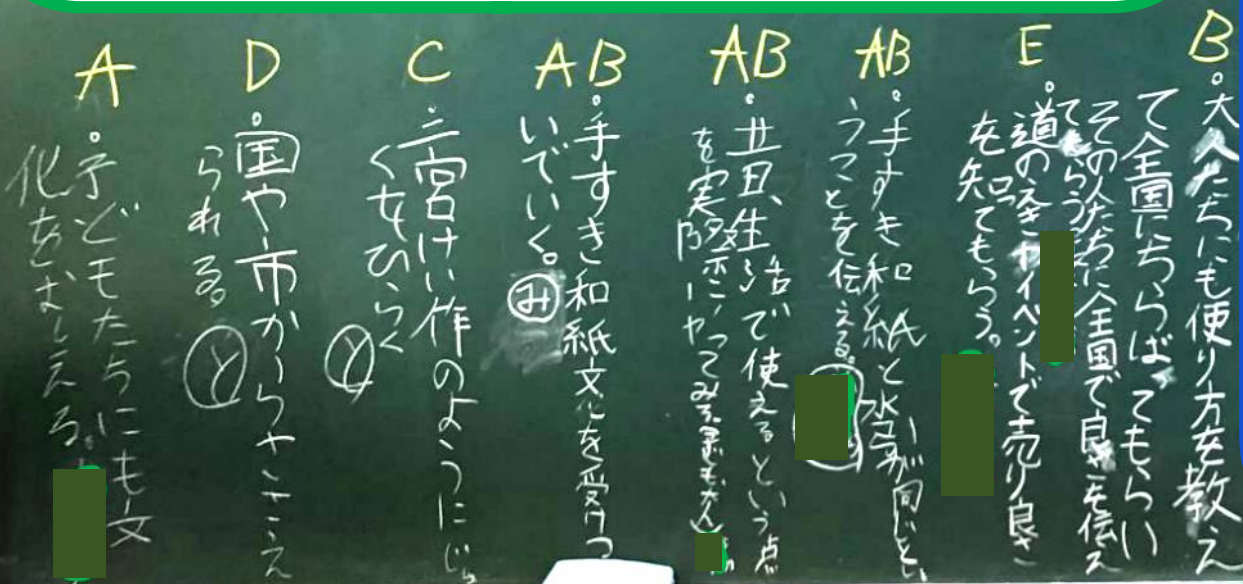 B
大人たちにも使り方を教え
て全国にちらばってもらい
その人たちに全国で良さを伝え
てもらう
E
道のえきやイベントで売り良さ
を知ってもらう。
AB
手すき和紙と
うことを伝える。
AB
昔、生活で使えるという点
を実際にやってみる
AB
手すき和紙文化を受けつ
いでいく。み
C
三宮けい作のようにじ
くをひらく
と
D
国や市からささえ
られる。
と
A
子どもたちにも文
化をおしえる。